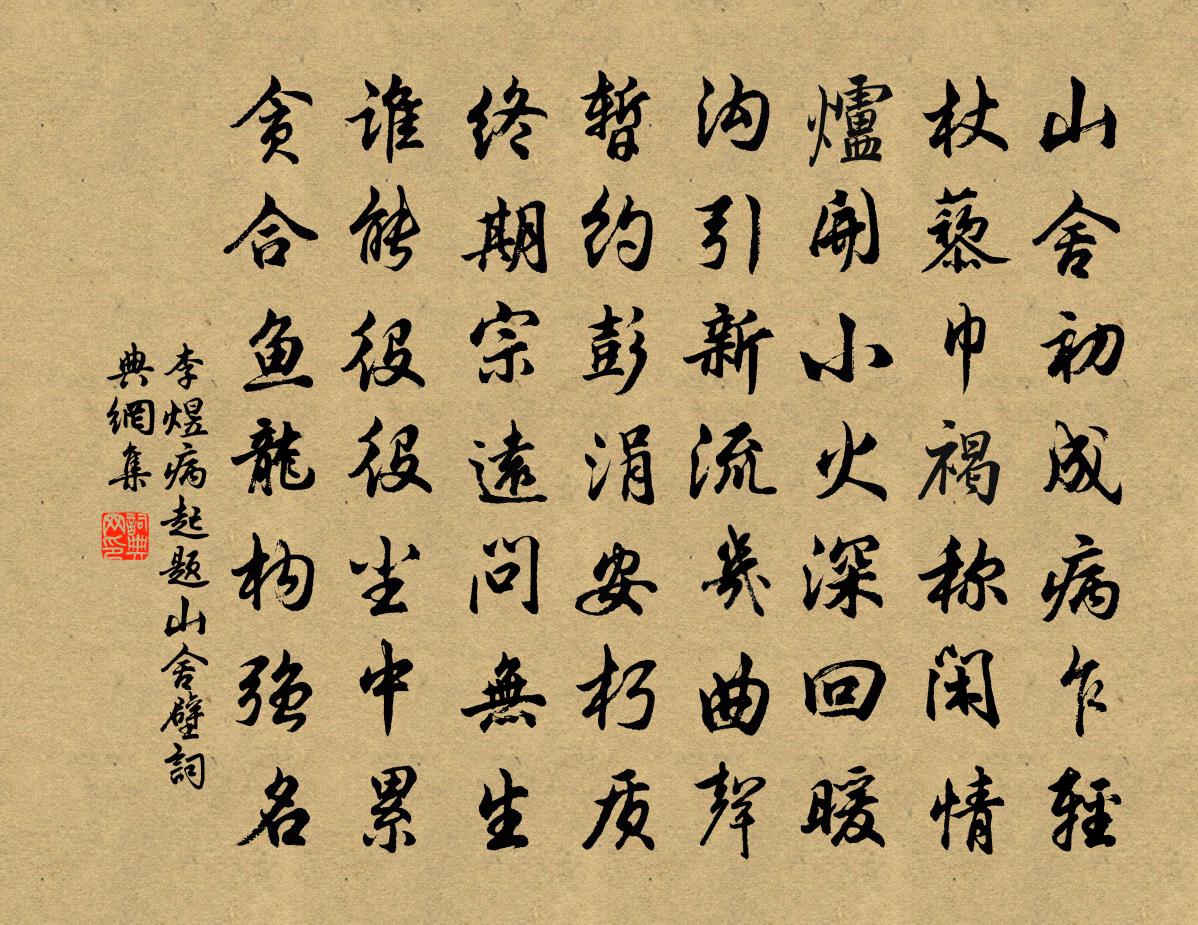 山舍初成病乍輕
杖藜巾褐称闲情
爐開小火深回暖
沟引新流幾曲聲
暫约彭涓安朽质
终期宗遠问無生
谁能役役尘中累
贪合鱼龍构强名
李煜病起题山舍壁詞
典網集
詞典
网印